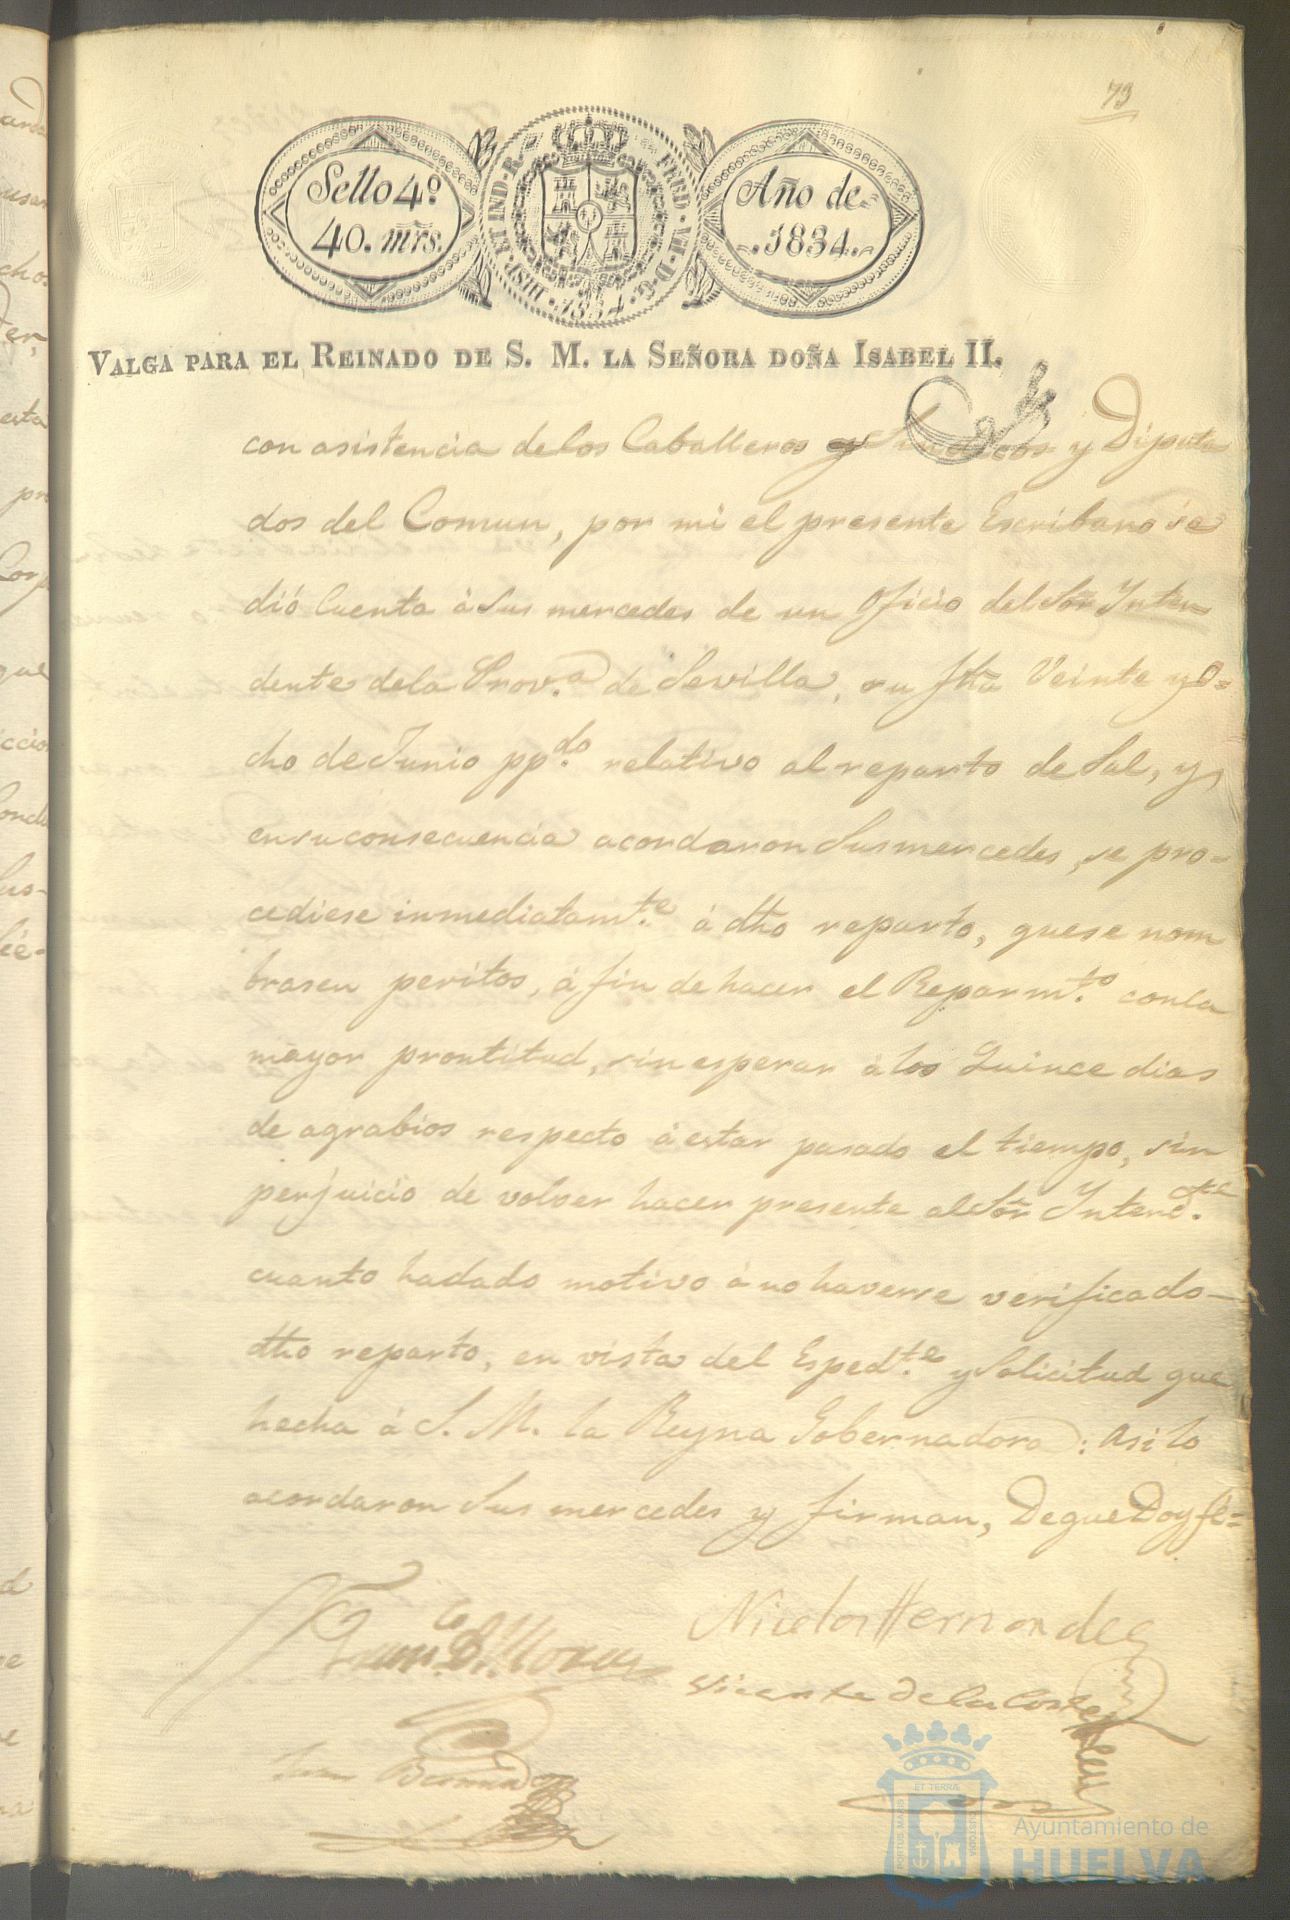 73
Sello 4º
40. mr̃s.
HISP. ET IND. R. FERD. VII. D. G.
1834
Año de
1834
VALGA PARA EL REINADO DE S. M. LA SEÑORA DOÑA ISABEL II.
con asistencia delos Caballeros y Diputa
dos del Comun, por mi el presente Escribano se
dió Cuenta á Sus mercedes de un Oficio del Sor̃ Inten
dente dela Prov.ª de Sevilla, su fha Veinte y O=
cho de Junio pp.do relativo al reparto de Sal, y
ensuconsecuencia acordaron Susmercedes, se pro=
cediese inmediatam.te á dho reparto, quese nom
brasen peritos, á fin de hacer el Reparm.to conla
mayor prontitud, sin esperar álos Quince dias
de agrabios respecto áestar pasado el tiempo, sin
perjuicio de volver hacer presente alSor̃ Intend.te
cuanto hadado motivo á no haverse verificado
dho reparto, en vista del Esped.te y Solicitud que
hecha á S. M. la Reyna Gobernadora: Asi lo
acordaron Sus mercedes y firman, Deque Doy fé=
Nicolas Hernandez
Vicente de la Corte
Juan Bermudez
PORTUS MARIS ET TERRÆ CUSTODIA
Ayuntamiento de
HUELVA